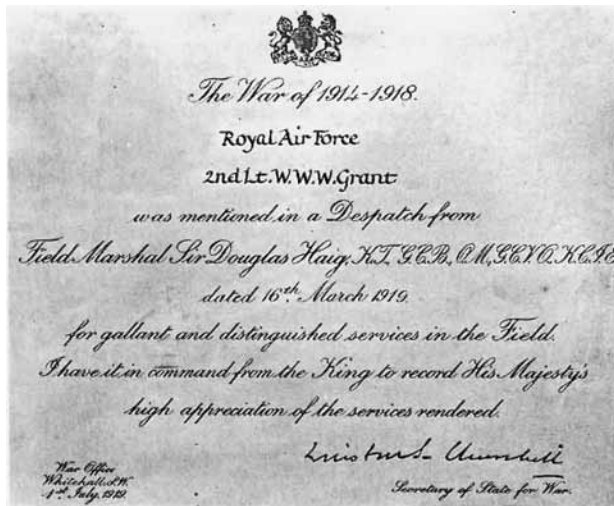 The War of 1914-1918.
Royal Air Force
2nd Lt. W.W.W. Grant
was mentioned in a Despatch from
Field Marshal Sir Douglas Haig, K.T., G.C.B., O.M., G.C.V.O., K.C.I.E
dated 16th March 1919.
for gallant and distinguished services in the Field.
I have it in command from the King to record His Majesty's
high appreciation of the services rendered.
Winston S. Churchill
War Office
Whitehall, S.W.
1st July, 1919.
Secretary of State for War.